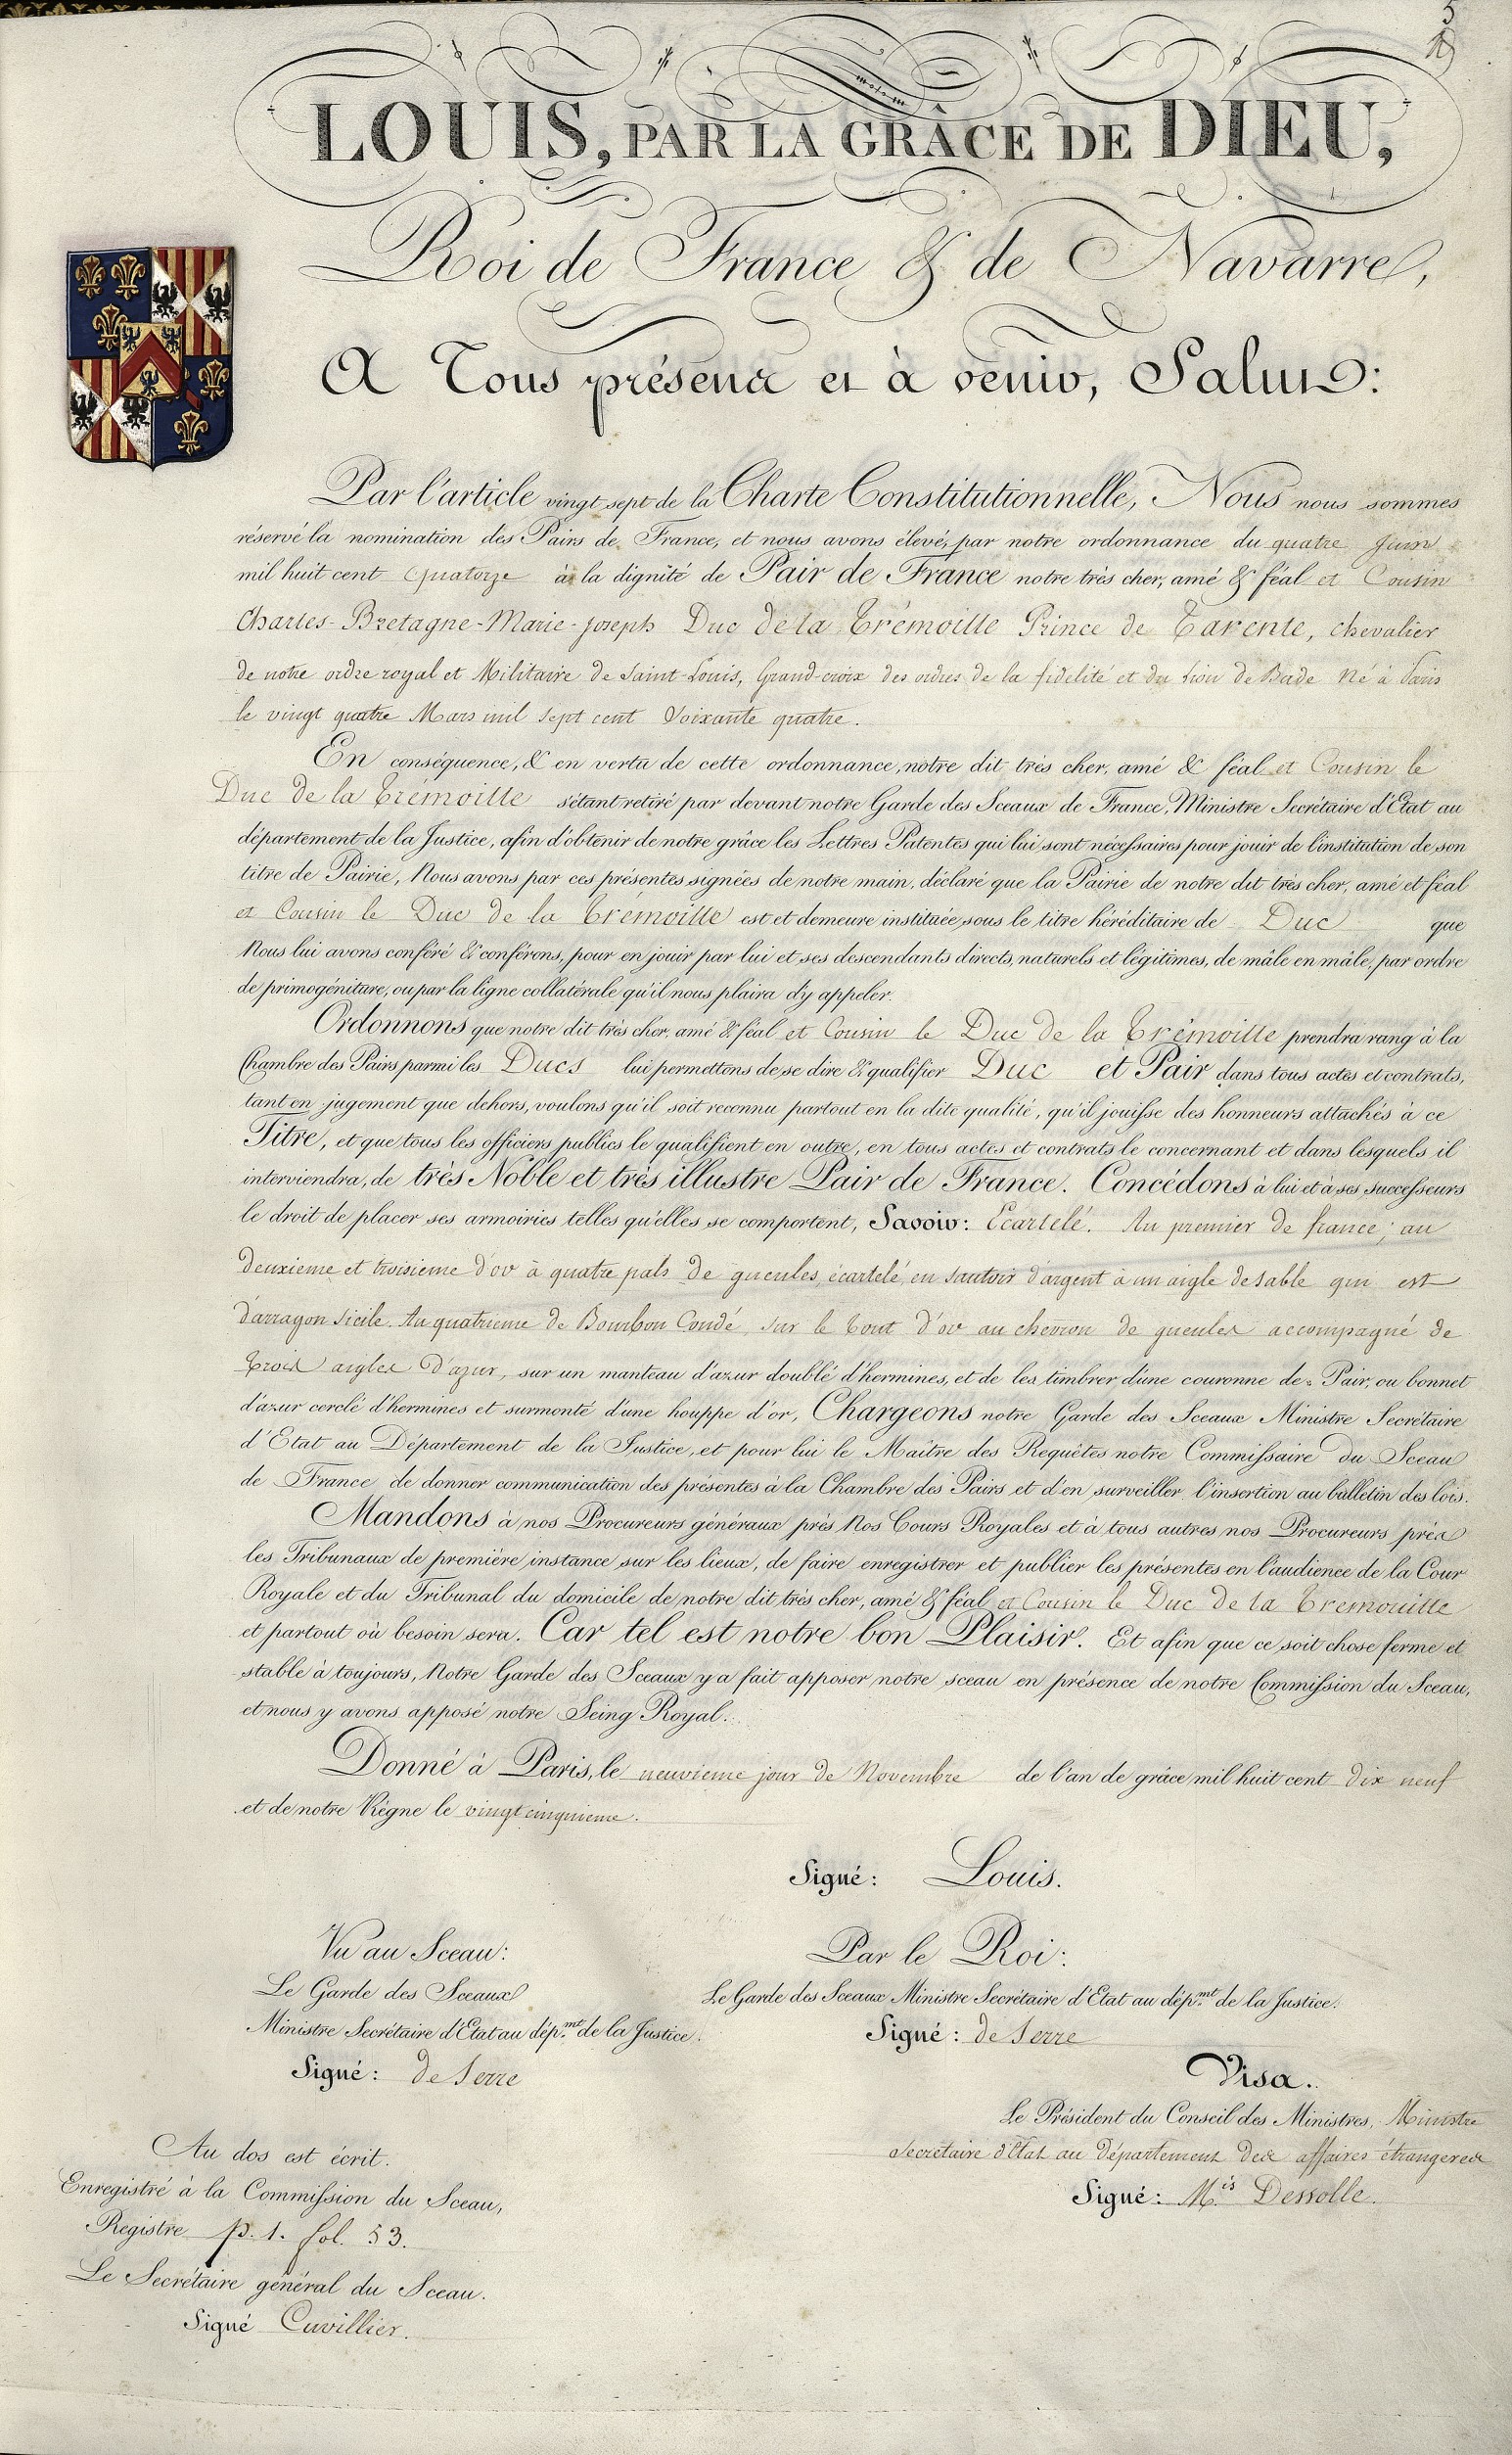 5
LOUIS, PAR LA GRÂCE DE DIEU,
Roi de France & de Navarre,
A Tous présens et à venir, Salut:
Par l'article vingt sept de la Charte Constitutionnelle, Nous nous sommes
réservé la nomination des Pairs de France, et nous avons élevé, par notre ordonnance du quatre Juin
mil huit cent Quatorze à la dignité de Pair de France notre très cher, amé & féal et Cousin
Charles-Bretagne-Marie-joseph Duc de la Trémoille Prince de Tarente, chevalier
de notre ordre royal et Militaire de Saint-Louis, Grand-croix des ordres de la fidelité et du Lion de Bade Né à Paris
le vingt quatre Mars mil sept cent Soixante quatre.
En conséquence, & en vertu de cette ordonnance, notre dit très cher, amé & féal et Cousin le
Duc de la Trémoille s'étant retiré par devant notre Garde des Sceaux de France, Ministre Secrétaire d'Etat au
département de la Justice, afin d'obtenir de notre grâce les Lettres Patentes qui lui sont nécessaires pour jouir de l'institution de son
titre de Pairie, Nous avons par ces présentes signées de notre main, déclaré que la Pairie de notre dit très cher, amé et féal
et Cousin le Duc de la Trémoille est et demeure instituée sous le titre héréditaire de Duc que
Nous lui avons conféré & conférons, pour en jouir par lui et ses descendants directs, naturels et légitimes, de mâle en mâle, par ordre
de primogéniture, ou par la ligne collatérale qu'il nous plaira d'y appeler.
Ordonnons que notre dit très cher, amé & féal et Cousin le Duc de la Trémoille prendra rang à la
Chambre des Pairs parmi les Ducs lui permettons de se dire & qualifier Duc et Pair dans tous actes et contrats,
tant en jugement que dehors, voulons qu'il soit reconnu partout en la dite qualité, qu'il jouisse des honneurs attachés à ce
Titre, et que tous les officiers publics le qualifient en outre, en tous actes et contrats le concernant et dans lesquels il
interviendra, de très Noble et très illustre Pair de France. Concédons à lui et à ses successeurs
le droit de placer ses armoiries telles qu'elles se comportent, Savoir: Ecartelé. Au premier de france; au
deuxieme et troisieme d'or à quatre pals de gueules, écartelé, en sautoir d'argent à un aigle de sable qui est
d'arragon Sicile. Au quatrieme de Bourbon Condé sur le tout d'or au chevron de gueules accompagné de
trois aigles d'azur, sur un manteau d'azur doublé d'hermines, et de les timbrer d'une couronne de Pair, ou bonnet
d'azur cerclé d'hermines et surmonté d'une houppe d'or, Chargeons notre Garde des Sceaux Ministre Secrétaire
d'Etat au Département de la Justice, et pour lui le Maître des Requêtes notre Commissaire du Sceau
de France de donner communication des présentes à la Chambre des Pairs et d'en surveiller l'insertion au bulletin des lois.
Mandons à nos Procureurs généraux près Nos Cours Royales et à tous autres nos Procureurs près
les Tribunaux de première instance sur les lieux, de faire enregistrer et publier les présentes en l'audience de la Cour
Royale et du Tribunal du domicile de notre dit très cher, amé & féal et Cousin le Duc de la Tremouille
et partout où besoin sera. Car tel est notre bon Plaisir. Et afin que ce soit chose ferme et
stable à toujours, Notre Garde des Sceaux y a fait apposer notre sceau en présence de notre Commission du Sceau,
et nous y avons apposé notre Seing Royal.
Donné à Paris, le neuvieme jour de Novembre de l'an de grâce mil huit cent dix neuf
et de notre Règne le vingt cinquieme.
Signé: Louis.
Vu au Sceau:
Le Garde des Sceaux
Ministre Secrétaire d'Etat au dép.mt de la Justice.
Signé: de Serre
Par le Roi:
Le Garde des Sceaux Ministre Secrétaire d'Etat au dép.mt de la Justice.
Signé: de Serre
Visa.
Le Président du Conseil des Ministres, Ministre
Secretaire d'Etat au Département des affaires étrangeres
Signé: M.is Dessolle.
Au dos est écrit.
Enregistré à la Commission du Sceau,
Registre p. 1. fol. 53.
Le Secrétaire général du Sceau.
Signé Cuvillier.